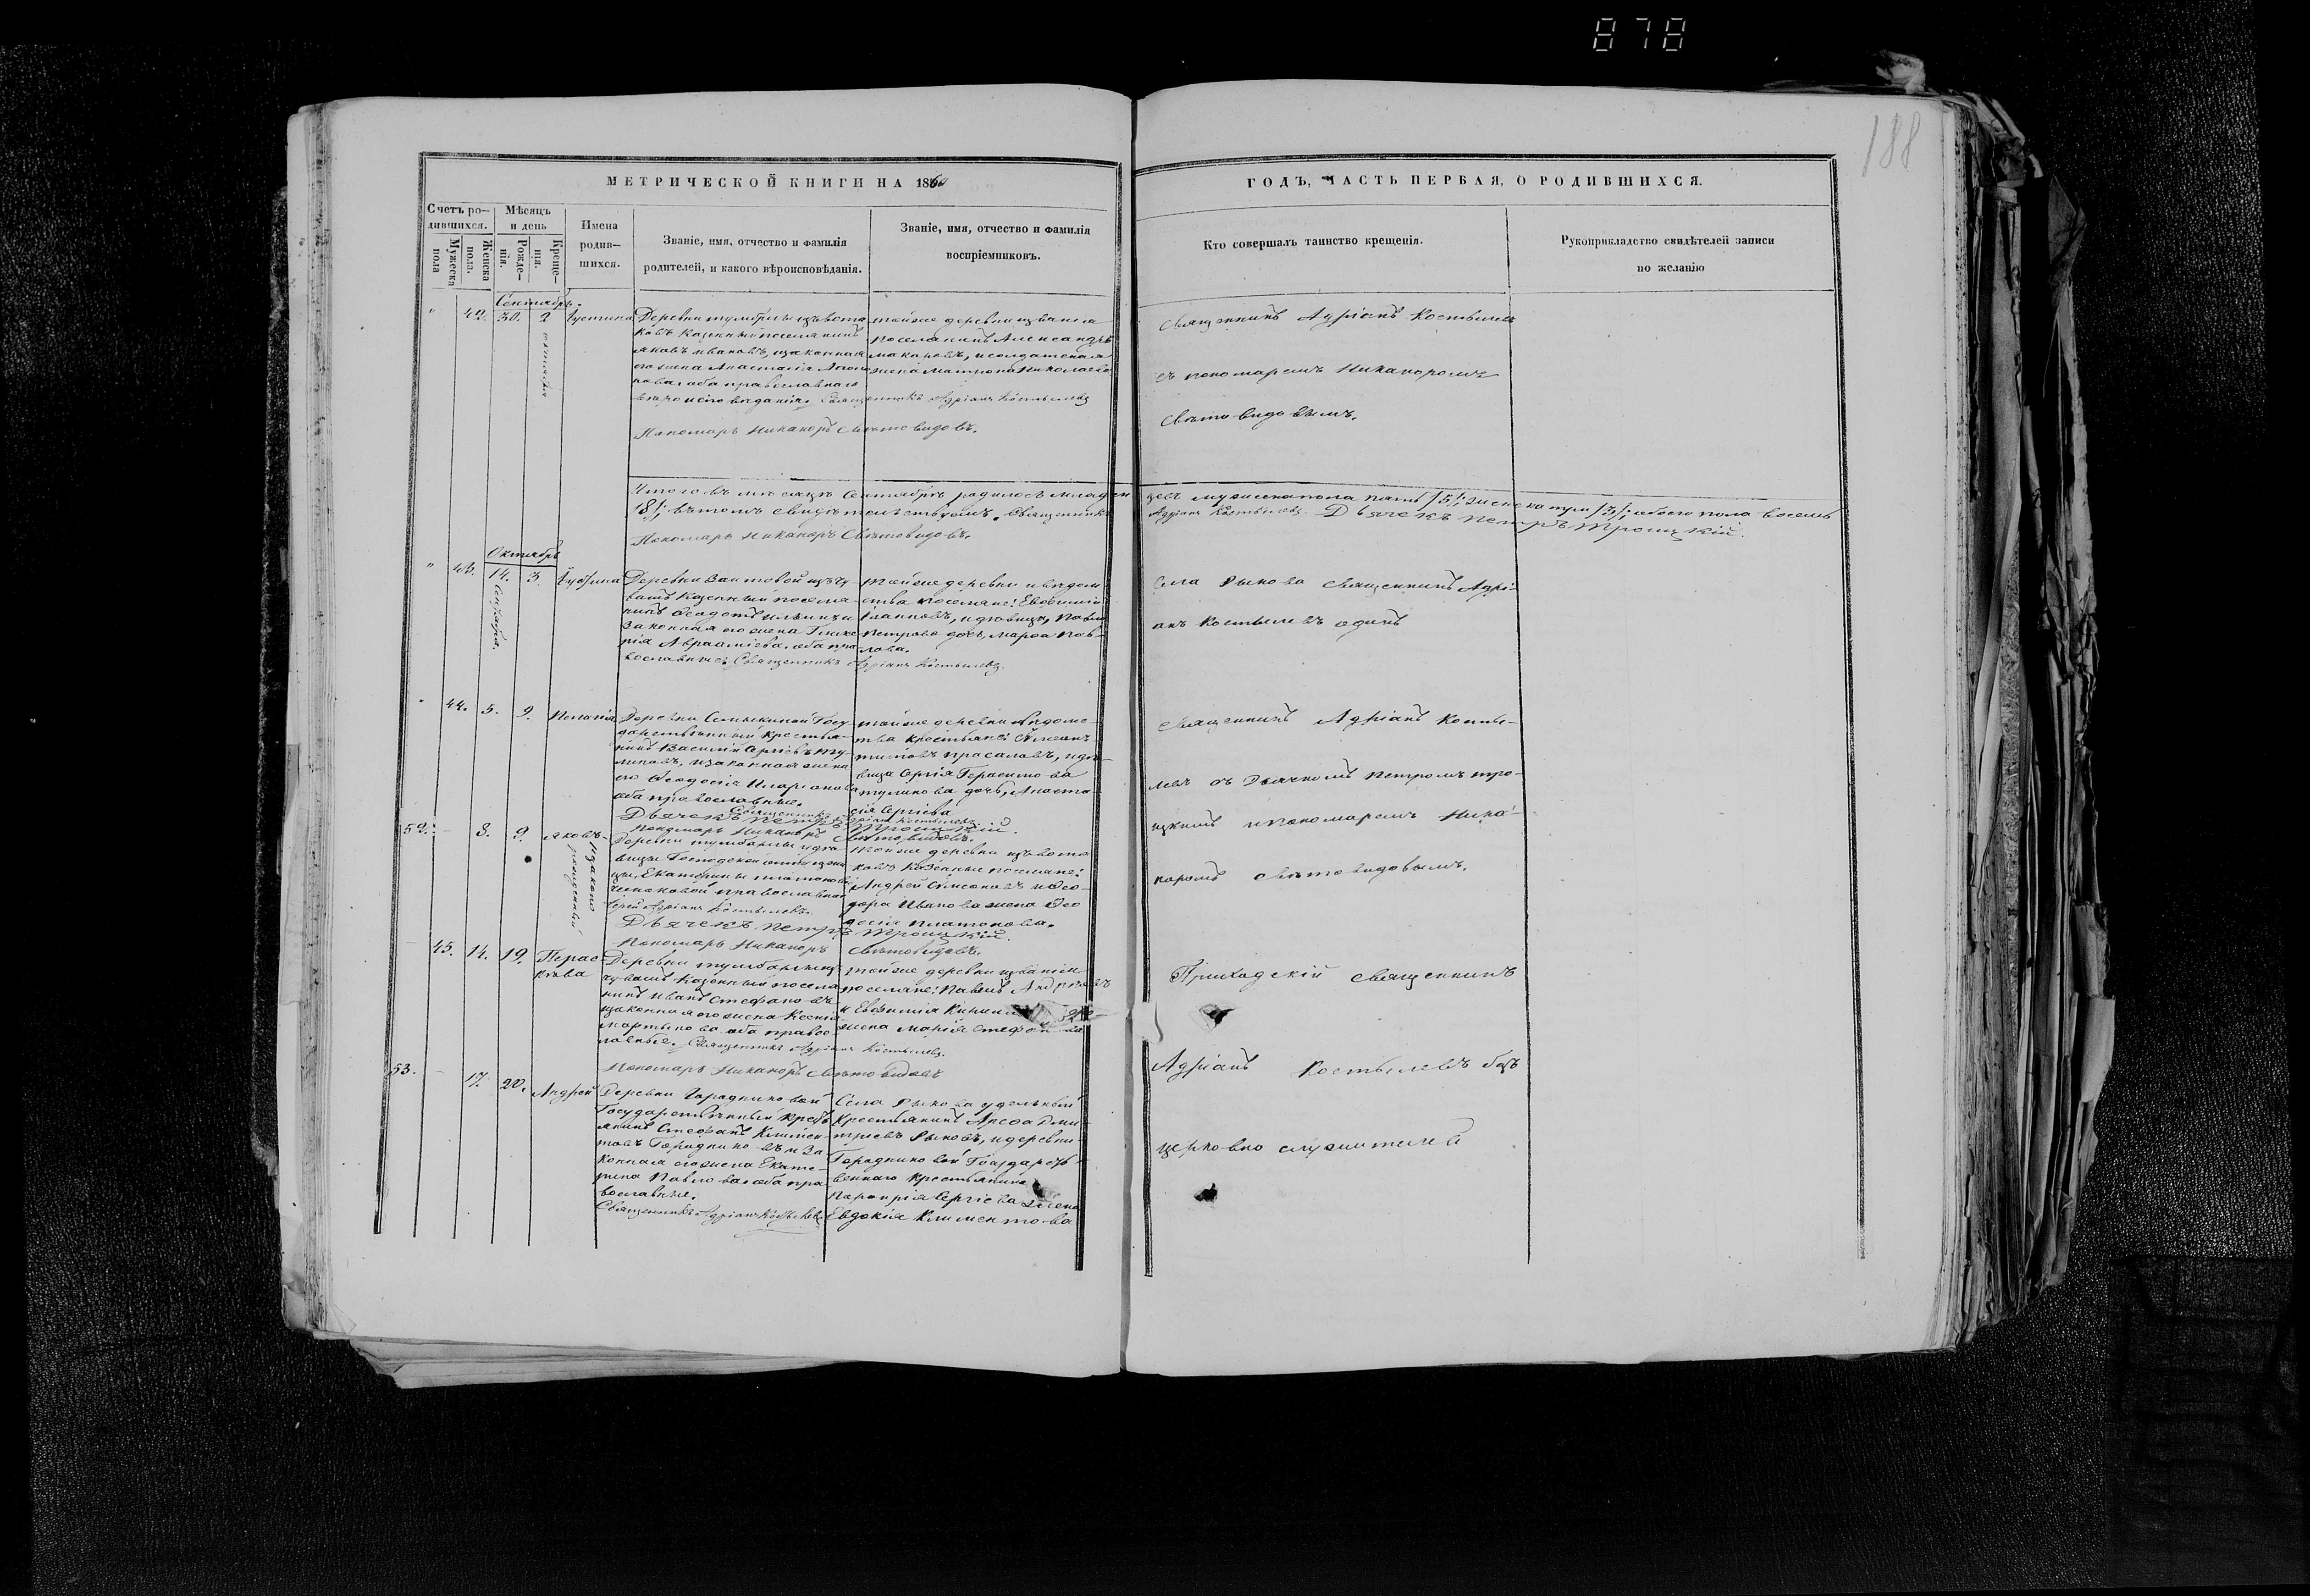 878
188
МЕТРИЧЕСКОЙ КНИГИ НА 1860
ГОДЪ, ЧАСТЬ ПЕРВАЯ, О РОДИВШИХСЯ.
Счетъ ро-
дившихся.
Мужеска
пола
Женска
пола.
Мѣсяцъ
и день
Рожде-
нія.
Креще-
нія.
Имена
родив-
шихся.
Званіе, имя, отчество и фамилія
родителей, и какого вѣроисповѣданія.
Званіе, имя, отчество и фамилія
воспріемниковъ.
Кто совершалъ таинство крещенія.
Рукоприкладство свидѣтелей записи
по желанію
Сентябрь.
42. 30. 2
октября
Іустина
Деревни
казенный поселянинъ
Яковъ Ивановъ, и законная
его жена Анастасія
оба православнаго
вѣроисповѣданія. Священникъ Адріанъ Костылевъ
Пономарь Никаноръ Свѣтовидовъ.
тойже деревни
поселянинъ Александръ
Макаровъ, и солдатская
жена Матрона Николаева
Священникъ Адріанъ Костылевъ
съ пономаремъ Никаноромъ
Свѣтовидовымъ.
Итого въ мѣсяцѣ Сентябрѣ родилось младен
цевъ мужеска пола пять /5/; женска три /3/; обоего пола восемь
/8/; въ томъ свидѣтельствуемъ. Священникъ
Адріанъ Костылевъ. Дьячекъ Петръ Троицкій.
Пономарь Никаноръ Свѣтовидовъ.
Октябрь
43. 14. 3.
Сентября.
Іустина
Деревни
казенный поселя-
нинъ Ѳеодотъ Ильинъ и
законная его жена Глике
рія Авраамиева. оба пра
вославные. Священникъ Адріанъ Костылевъ.
тойже деревни и вѣдом
ства поселяне: Евѳимій
Іоанновъ, и дѣвица, Павла
Петрова дочь, Марѳа Пав-
лова.
Села Рыкова священникъ Адрі-
анъ Костылевъ одинъ
44. 5. 9. Пелагія
Деревни Госу-
дарственный крестья-
нинъ Василій Сергіевъ
и законная жена
его Ѳеодосія Иларіонова
оба православные.
Священникъ Адріанъ Костылевъ.
Дьячекъ Петръ Троицкій.
Пономарь Никаноръ Свѣтовидовъ.
тойже деревни и вѣдомс
тва крестьяне: Симеонъ
Титовъ и дѣ-
вица Сергія Герасимова
дочь, Анаста-
сія Сергіева
Священникъ Адріанъ Косты-
левъ съ Дьячкомъ Петромъ Тро-
ицкимъ и пономаремъ Ника-
норомъ Свѣтовидовымъ.
52. 8. 9. Яковъ
незаконо
рожденный
Деревни
Екатерины Платоновой
православной
Іерей Адріанъ Костылевъ.
Дьячекъ Петръ Троицкій.
Пономарь Никаноръ Свѣтовидовъ.
тойже деревни
казенные поселяне:
Андрей Симеоновъ и Ѳео-
дора Иванова жена Ѳео
досія Платонова.
45. 14. 19. Парас
кева
Деревни
казенный поселя
нинъ Иванъ Стефановъ
и законная его жена Ксенія
Мартынова оба правос
лавные. Священникъ Адріанъ Костылевъ.
Пономарь Никаноръ Свѣтовидовъ
тойже деревни
поселяне: Павелъ Андреевъ
и Евфимія
жена Марія Стефанова
Приходскій священникъ
Адріанъ Костылевъ безъ
церковно служителей
53. 17. 20. Андрей
Деревни Городниковой
Государственный крестъ
янинъ Стефанъ Климен
товъ Городниковъ и за
конная его жена Екате-
рина Павлова оба пра
вославные.
Священникъ Адріанъ Костылевъ
Села Рыкова удѣльный
крестьянинъ Арефа Дми
тріевъ Рыковъ, и деревни
Городниковой Государст-
веннаго крестьянина
Сергіева жена
Евдокія Климентова